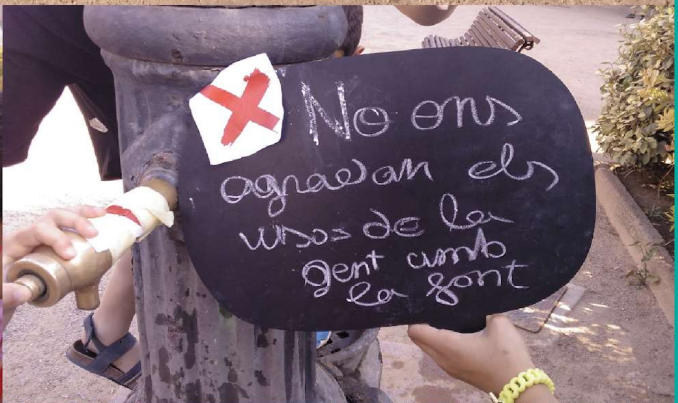 No ens
agradan els
usos de la
gent amb
la font